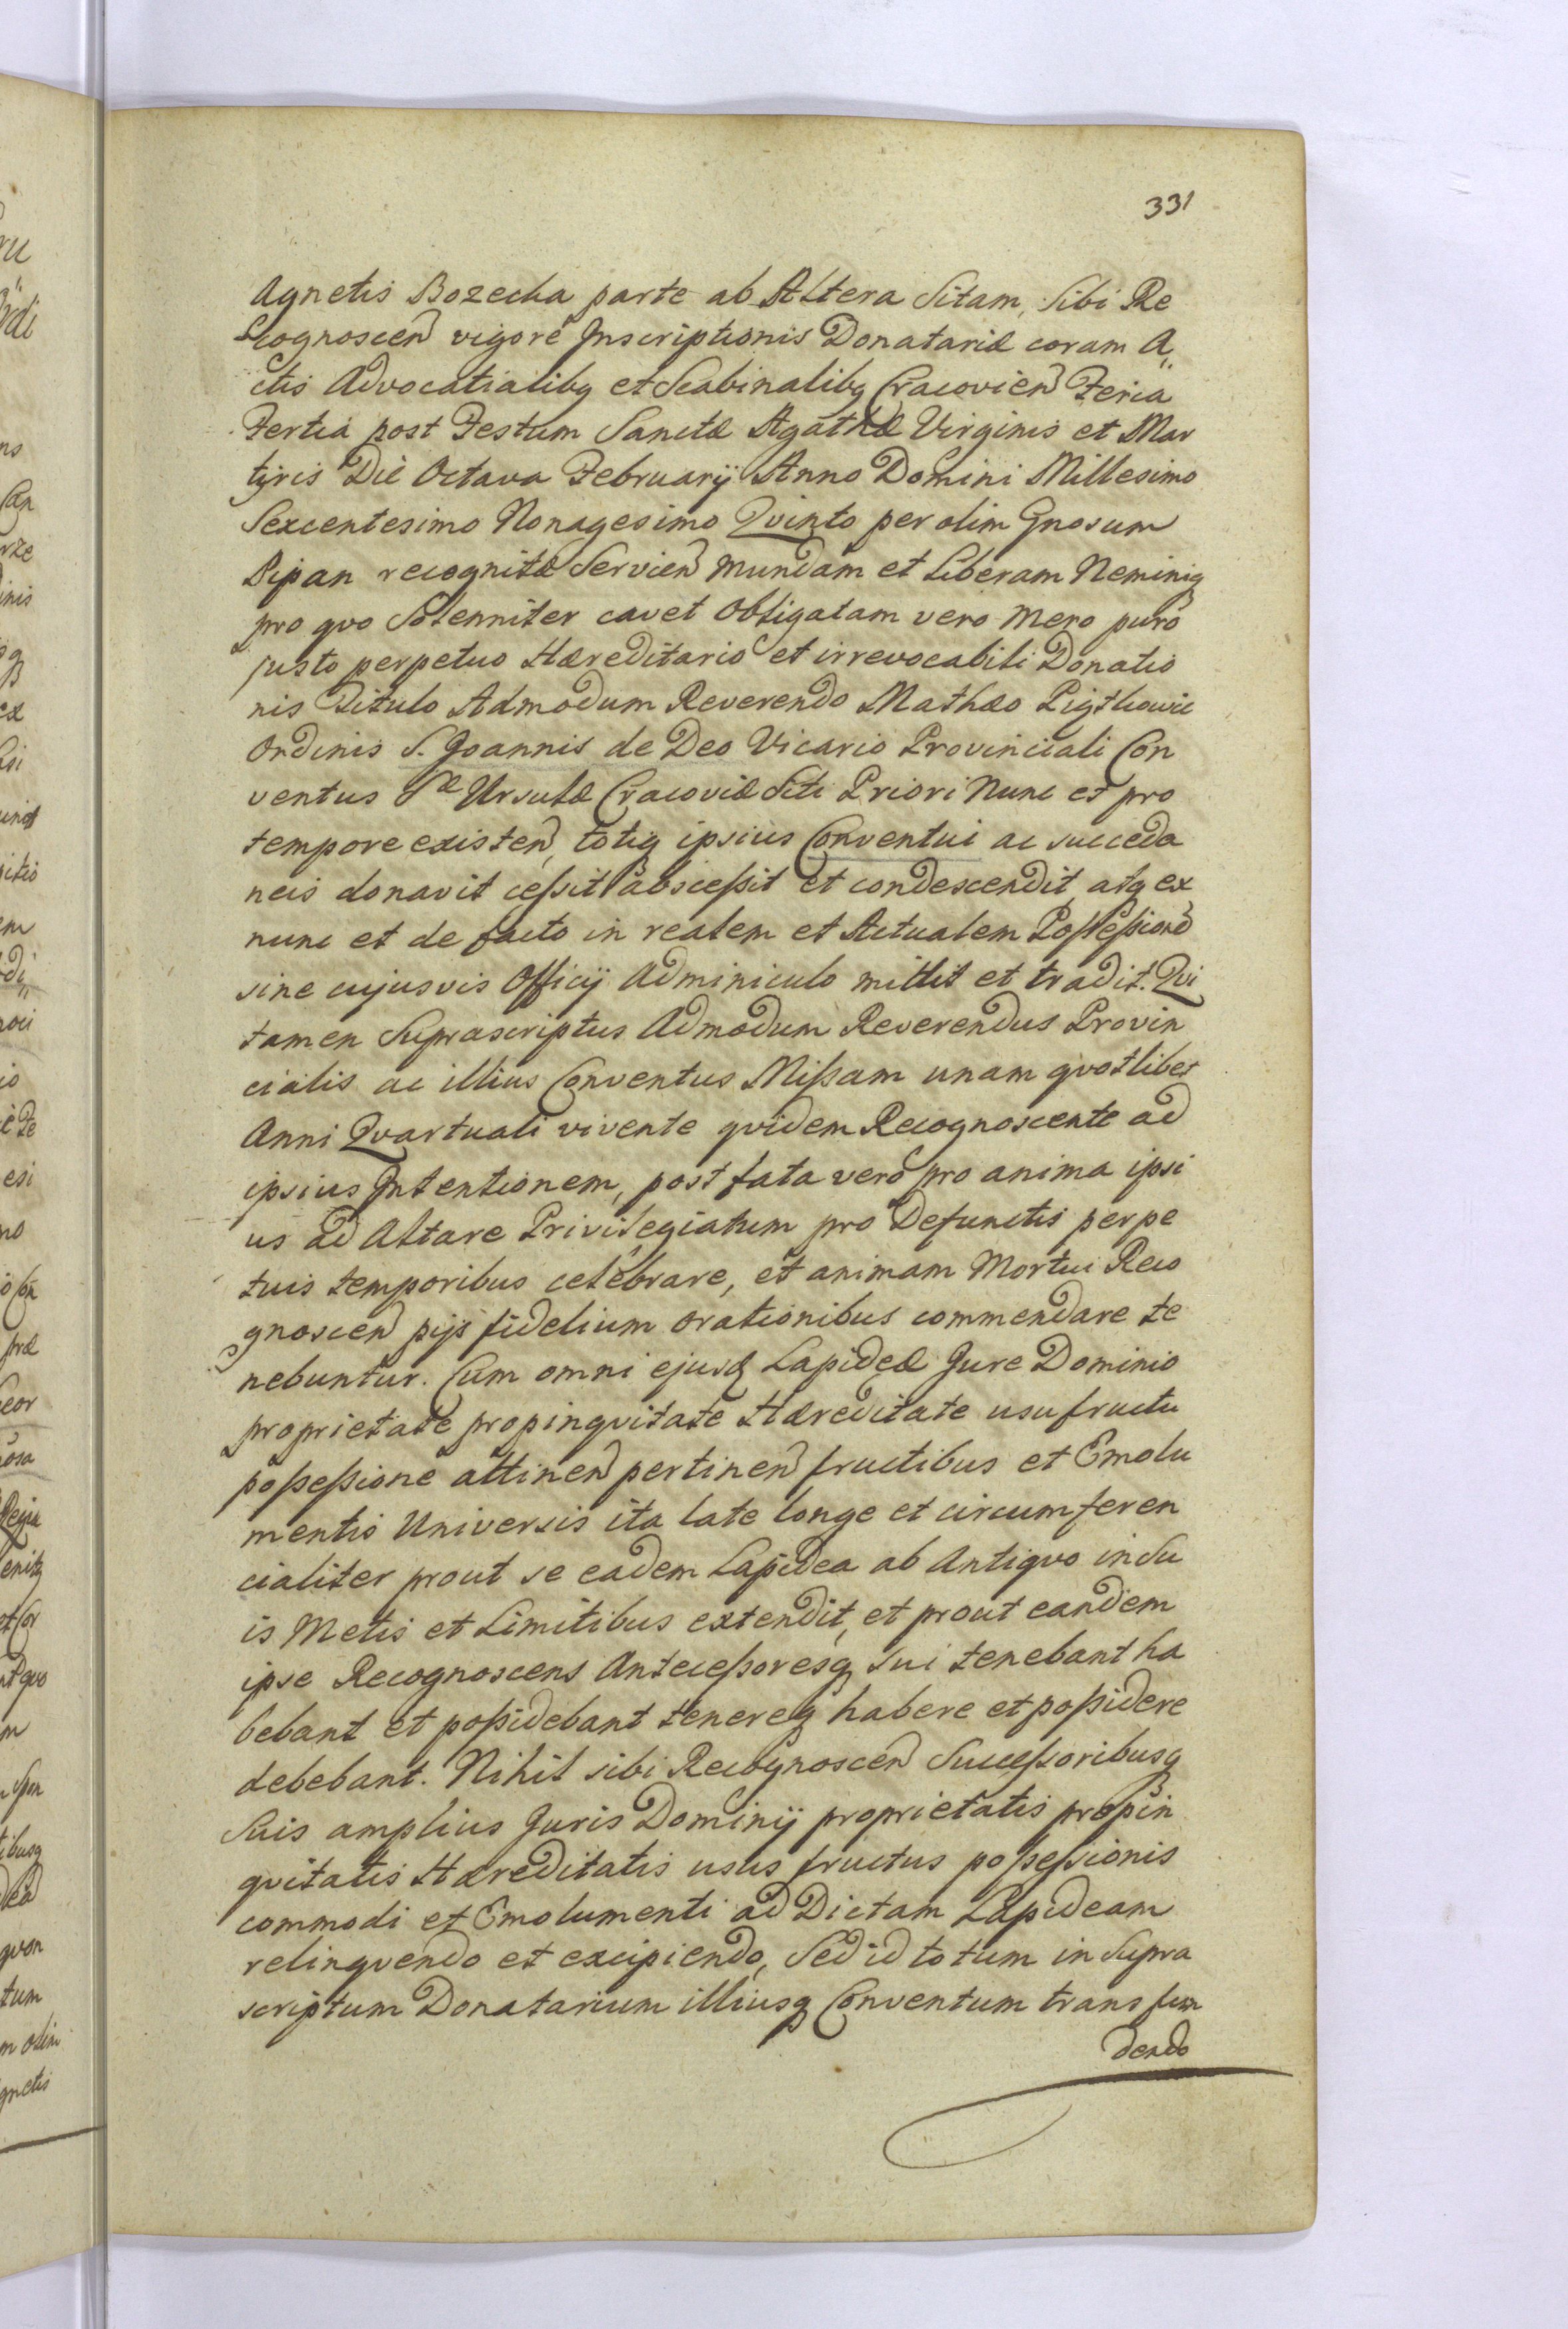 331
Agnetis Bozecka parte ab Altera Sitam, Sibi Re
cognoscen vigore Inscriptionis Donatariæ coram A„
ctis Advocatialibq et Scabinalibq Cracovien Feria
Tertia post Festum Sanctæ Agathæ Virginis et Mar
tyris Die Octava Februarij Anno Domini Millesimo
Sexcentesimo Nonagesimo Qvinto per olim Gnosum
Pipan recognitæ Servien mundam et Liberam Neminiq
pro qvo Solenniter cavet obligatam vero mero puro
justo perpetuo Hæreditario et irrevocabili Donatio
nis Titulo Admodum Reverendo Mathæo
Ordinis S. Joannis de Deo Vicario Provinciali Con
ventus Sæ Ursulæ Cracoviæ Siti Priori Nunc et pro
tempore existen, totiq ipsius Conventui ac succeda
neis donavit ceſsit absceſsit et condescendit atq ex
nunc et de facto in realem et Actualem Poſseſsione
sine cujusvis Officij Adminiculo mittit et tradit. Qvi
tamen Suprascriptus Admodum Reverendus Provin
cialis ac illius Conventus Miſsam unam qvotlibet
Anni Qvartuali vivente qvidem Recognoscente ad
ipsius Intentionem, post fata vero pro anima ipsi
us ad Altare Privilegiatum pro Defunctis perpe
tuis temporibus celebrare, et animam Mortui Reco
gnoscen pijs fidelium orationibus commendare te
nebuntur. Cum omni ejusd Lapideæ Jure Dominio
proprietate propinqvitate Hæreditate usufructu
poſseſsione attinen pertinen fructibus et Emolu
mentis Universis ita late longe et circumferen
cialiter prout se eadem Lapidea ab Antiqvo in Su
is Metis et Limitibus extendit, et prout eandem
ipse Recognoscens Anteceſsoresq sui tenebant ha
bebant et poſsidebant tenereq habere et poſsidere
debebant. Nihil sibi Recognoscen Succeſsoribusq
Suis amplius Juris Dominij proprietatis propin
qvitatis Hæreditatis usus fructus poſseſsionis
commodi et Emolumenti ad Dictam Lapideam
relinqvendo et excipiendo, Sed id totum in Supra
scriptum Donatarium illiusq Conventum transfun
dendo